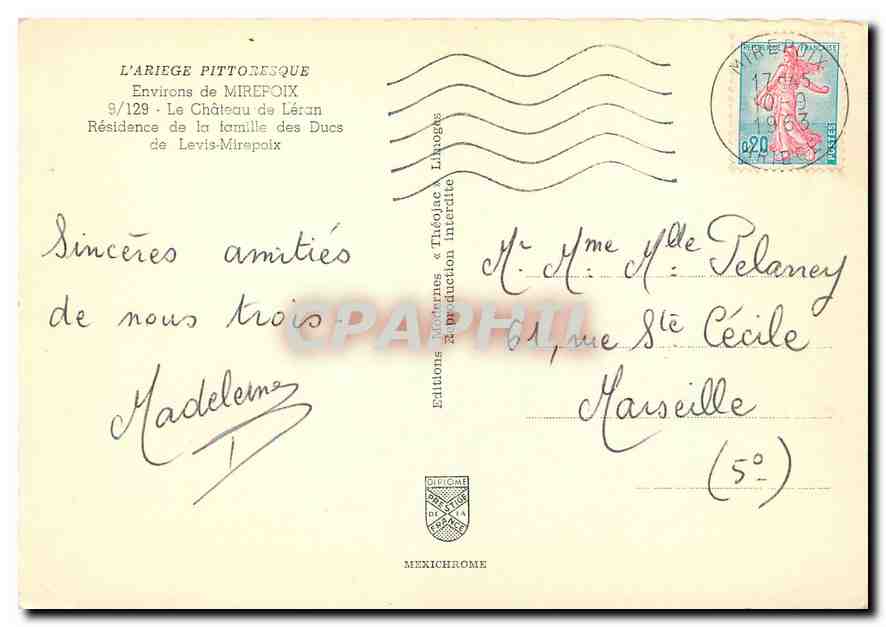 L'ARIEGE PITTORESQUE
Environs de MIREPOIX
9/129 - Le Château de Léran
Résidence de la famille des Ducs
de Levis-Mirepoix
Sincères amitiés
de nous trois -
Madeleine
Editions Modernes « Théojac » Limoges
Reproduction interdite
CPAPHIL
DIPLOME
PRESTIGE
DE LA
FRANCE
MEXICHROME
REPUBLIQUE FRANÇAISE
0,20
POSTES
MIREPOIX
17H45
10-9
1963
ARIEGE
Mr Mme Mlle Pelanney
61, rue Ste Cécile
Marseille
(5º)